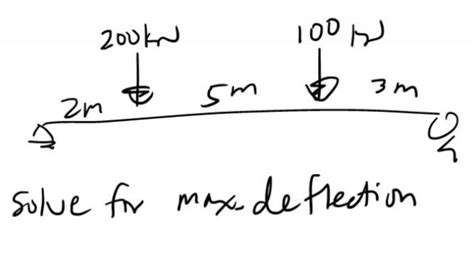 200kN 100 kN
2m 5m 3m
solve for max. deflection